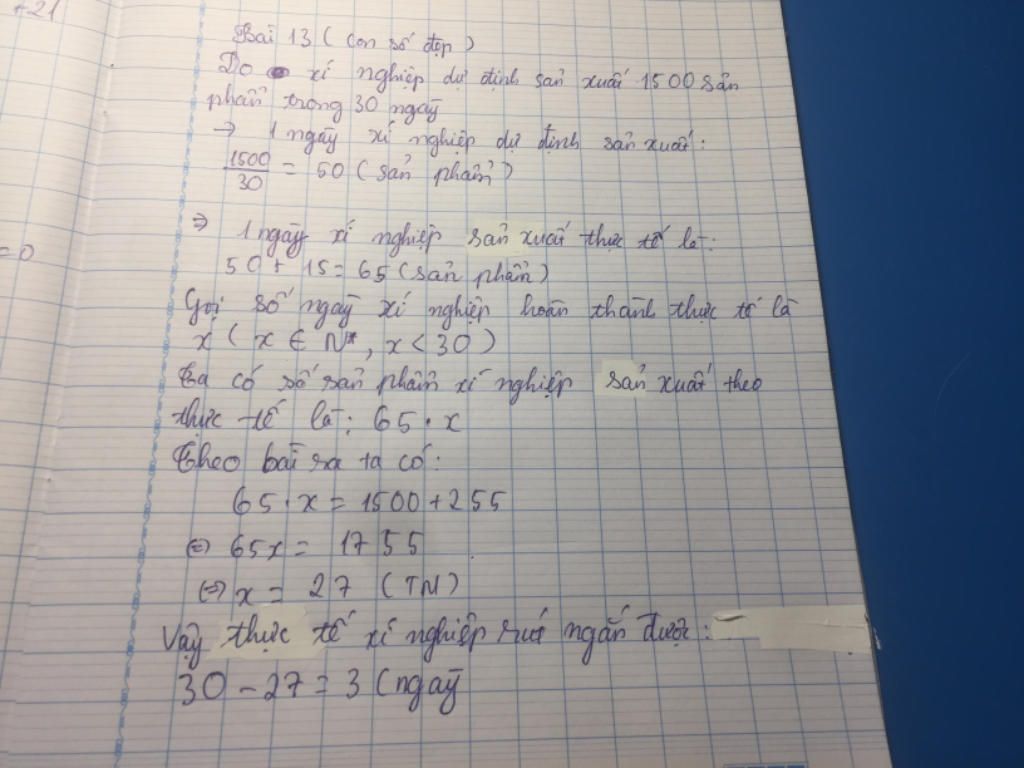 +21
=0
Bài 13 ( con số đẹp )
Do xí nghiệp dự định sản xuất 1500 sản
phẩm trong 30 ngày
→ 1 ngày xí nghiệp dự định sản xuất:
1500/30 = 50 ( sản phẩm )
⇒ 1 ngày xí nghiệp sản xuất thực tế là:
50 + 15 = 65 (sản phẩm)
Gọi số ngày xí nghiệp hoàn thành thực tế là
x ( x ∈ N*, x < 30 )
Ta có số sản phẩm xí nghiệp sản xuất theo
thực tế là: 65 . x
Theo bài ra ta có:
65 . x = 1500 + 255
⇔ 65x = 1755
⇔ x = 27 (TN)
Vậy thực tế xí nghiệp rút ngắn được:
30 - 27 = 3 (ngày